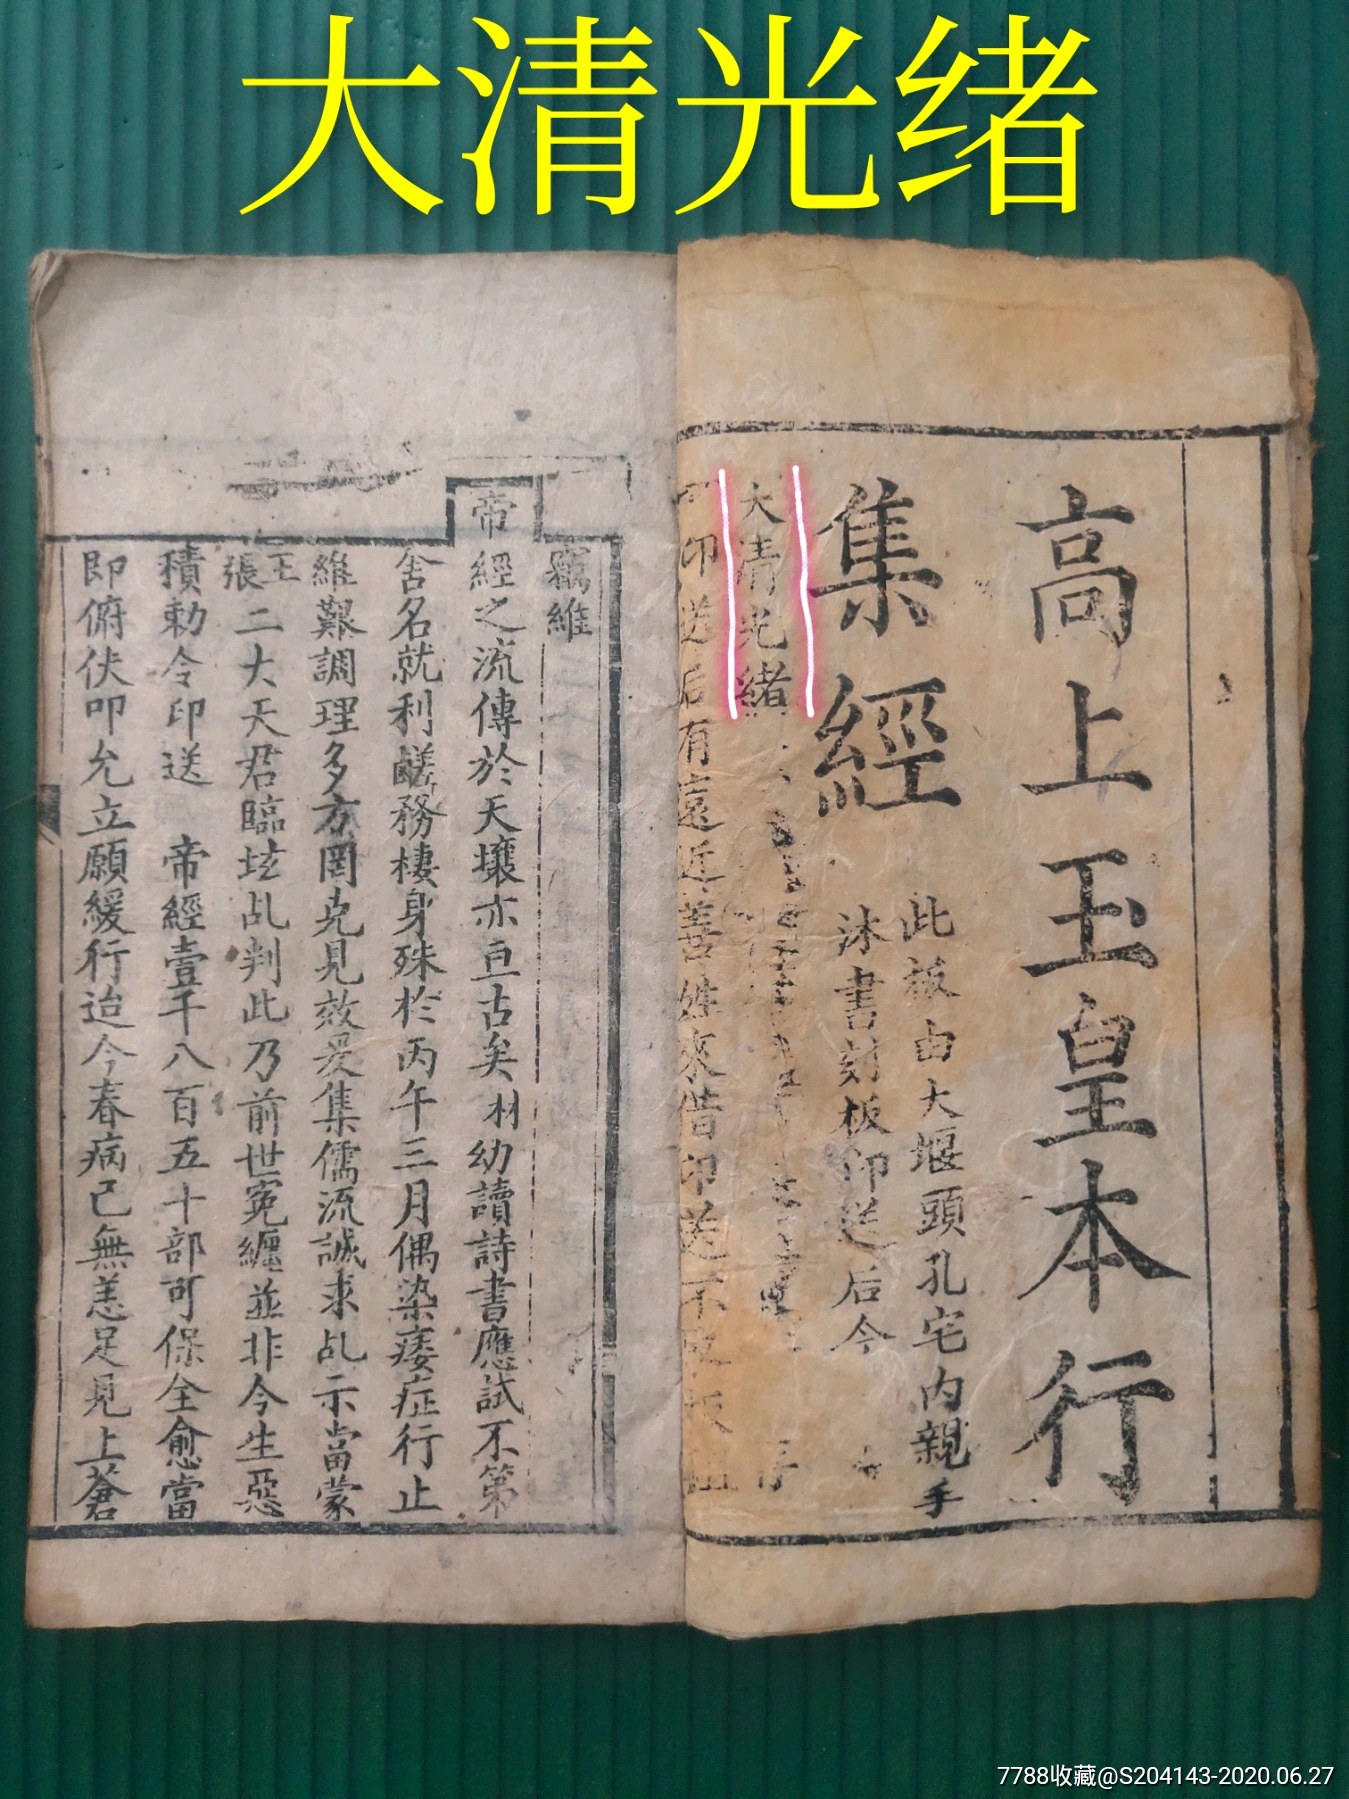 大清光绪
高上玉皇本行
集經
此板由大堰頭孔宅內親手
沐書刻板印送后今
大清光緒
印送后有遠近善姓來借印送不取板租
竊維
帝經之流傳於天壤亦亘古矣 幼讀詩書應試不第
舍名就利鹺務棲身殊於丙午三月偶染痿症行止
維艱調理多方罔克見效爰集儒流誠求乩示當蒙
王張二大天君臨坛乩判此乃前世冤纏並非今生惡
積勅令印送 帝經壹千八百五十部可保全愈當
即俯伏叩允立願緩行迨今春病已無恙足見上蒼
7788收藏@S204143-2020.06.27